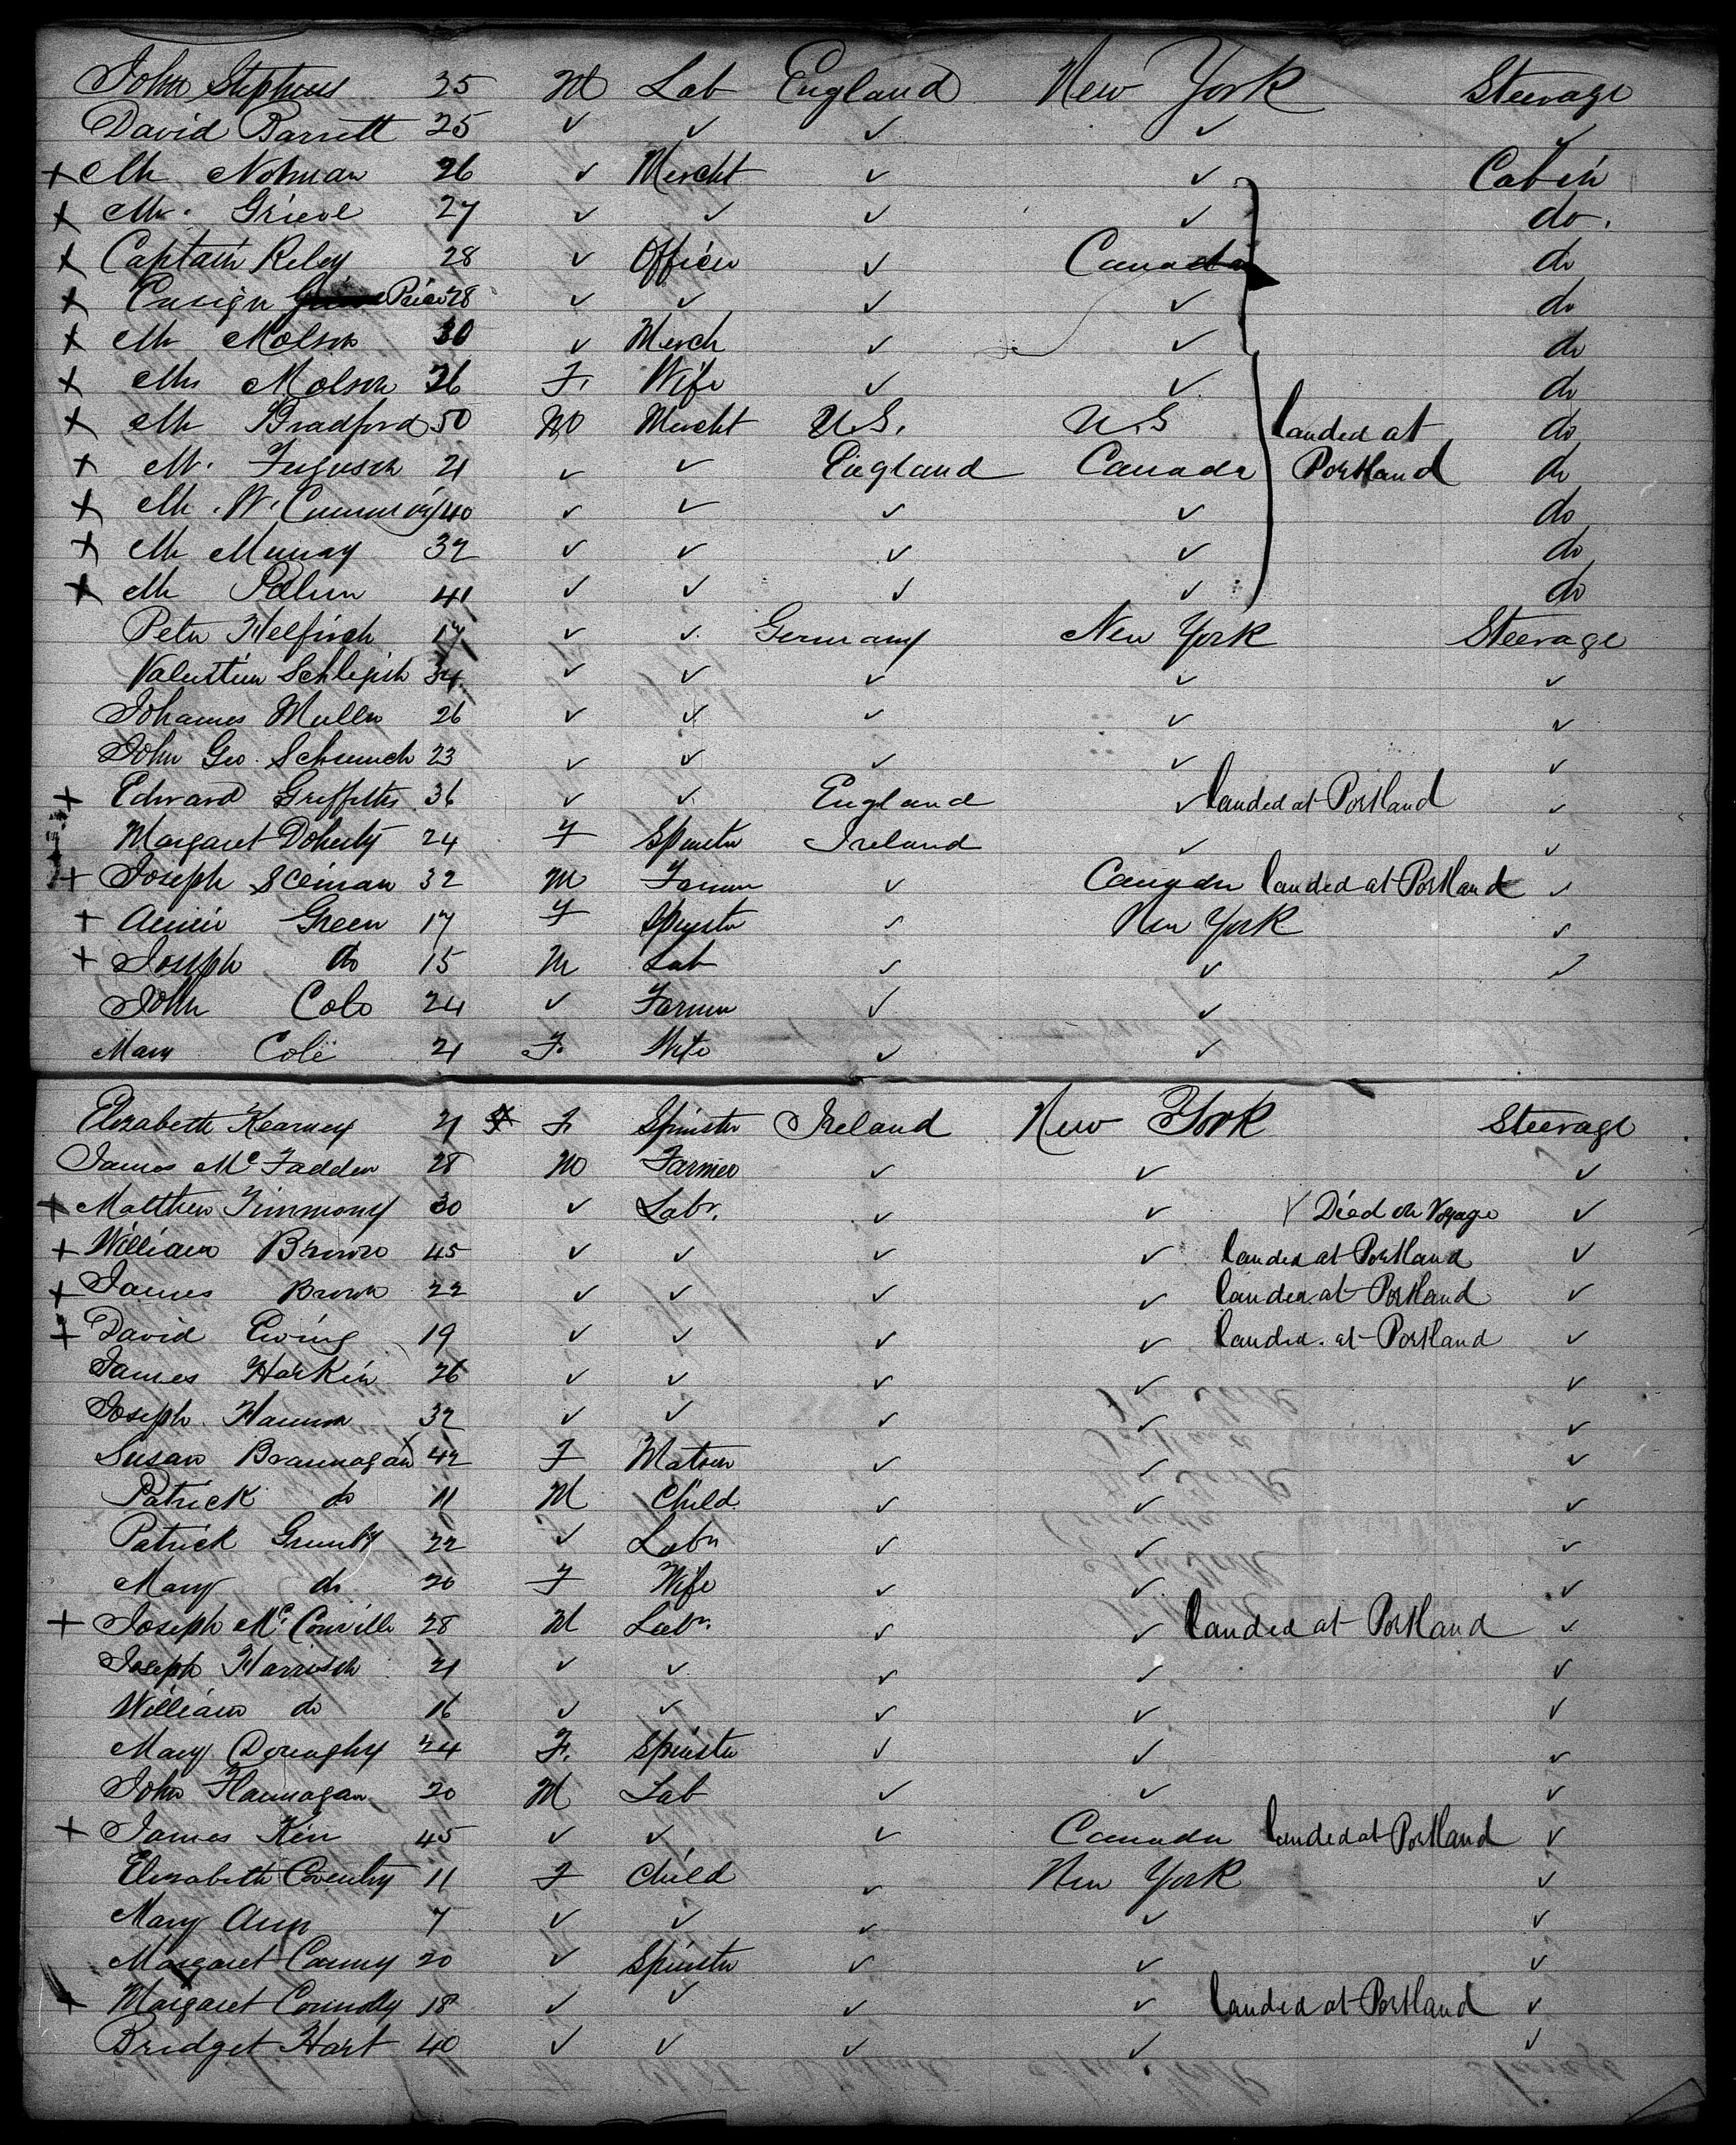 John Stephens 35 M Lab England New York Steerage
David Barrett 25 ✓ ✓ ✓ ✓ ✓
+ Mr Notman 26 ✓ Mercht ✓ ✓ Cabin
+ Mr. Grieve 27 ✓ ✓ ✓ ✓ do.
+ Captain Riley 28 ✓ Officer ✓ Canada do
+ Ensign Price 28 ✓ ✓ ✓ ✓ do
+ Mr Molson 30 ✓ Merch ✓ ✓ do
+ Mrs Molson 26 F. Wife ✓ ✓ do
+ Mr Bradford 50 M Mercht U.S. U.S landed at do
+ Mr. Fuguson 21 ✓ ✓ England Canada Portland do
+ Mr. W. 40 ✓ ✓ ✓ ✓ do
+ Mr Murray 32 ✓ ✓ ✓ ✓ do
+ Mr 41 ✓ ✓ ✓ ✓ do
Peter Helfirch 17 ✓ ✓ Germany New York Steerage
Valentein 34 ✓ ✓ ✓ ✓ ✓
Johannes Muller 26 ✓ ✓ ✓ ✓ ✓
John Geo. 23 ✓ ✓ ✓ ✓ ✓
+ Edward Griffiths 36 ✓ ✓ England ✓ landed at Portland ✓
Margaret Doherty 24 F Spinster Ireland ✓ ✓
+ Joseph 32 M Farmer ✓ Canada landed at Portland ✓
+ Annie Green 17 F Spinster ✓ New York ✓
+ Joseph do 15 M Lab ✓ ✓ ✓
John Cole 24 ✓ Farmer ✓ ✓
Mary Cole 21 F. Wife ✓ ✓
Elizabeth Kearney 21 F Spinster Ireland New York Steerage
James Mc Fadden 28 M Farmer ✓ ✓ ✓
+ Matthew Timmony 30 ✓ Labr. ✓ ✓ ✓ Died on Voyage ✓
+ William Brown 45 ✓ ✓ ✓ ✓ landed at Portland ✓
+ James Brown 22 ✓ ✓ ✓ ✓ landed at Portland ✓
+ David Ewing 19 ✓ ✓ ✓ ✓ landed at Portland ✓
James Harkin 26 ✓ ✓ ✓ ✓ ✓
Joseph Hanna 32 ✓ ✓ ✓ ✓ ✓
Susan Brannagan 42 F Matron ✓ ✓ ✓
Patrick do 11 M Child ✓ ✓ ✓
Patrick 22 ✓ Labr ✓ ✓ ✓
Mary do 20 F Wife ✓ ✓ ✓
+ Joseph Mc Conville 28 M Labr. ✓ ✓ landed at Portland ✓
Joseph Harrison 21 ✓ ✓ ✓ ✓ ✓
William do 16 ✓ ✓ ✓ ✓ ✓
Mary Donaghy 24 F. Spinster ✓ ✓ ✓
John Flannagan 20 M Lab ✓ ✓ ✓
+ James Kerr 45 ✓ ✓ ✓ Canada landed at Portland ✓
Elizabeth Coventry 11 F Child ✓ New York ✓
Mary Ann 7 ✓ ✓ ✓ ✓ ✓
Margaret Canny 20 ✓ Spinster ✓ ✓ ✓
+ Margaret Connolly 18 ✓ ✓ ✓ ✓ landed at Portland ✓
Bridget Hart 40 ✓ ✓ ✓ ✓ ✓